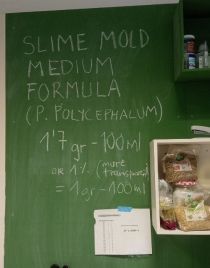 SLIME MOLD
MEDIUM
FORMULA
(P. POLYCEPHALUM)
1'7gr - 100ml
OR 1% (more
transparent)
= 1gr - 100ml